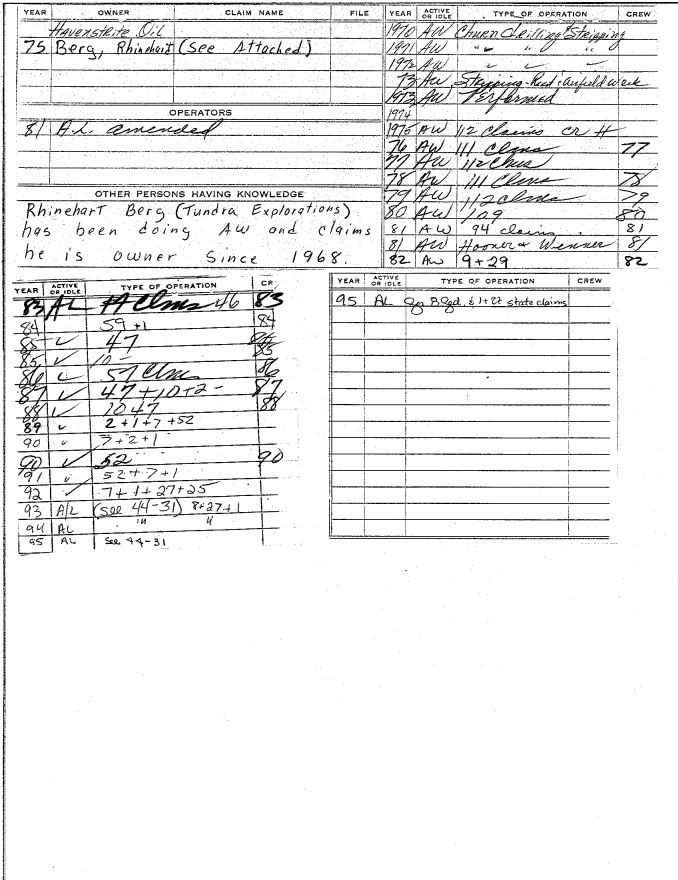 YEAR OWNER CLAIM NAME FILE
Havenstrite Oil
75 Berg, Rhinehart (See Attached)
OPERATORS
81 A.L. amended
OTHER PERSONS HAVING KNOWLEDGE
Rhinehart Berg (Tundra Explorations)
has been doing AW and claims
he is owner since 1968.
YEAR ACTIVE OR IDLE TYPE OF OPERATION CREW
1970 AW Churn drilling & Stripping
1971 AW " " " "
1972 AW ✓ ✓ ✓
73 AW Stripping - Road & airfield work
1973 AW Performed
1974
1975 AW 112 claims
76 AW 111 Clms 77
77 AW 112 Clms
78 AW 111 Clms 78
79 AW 112 clms 79
80 AW 109 80
81 AW 94 claims 81
81 AW 81
82 AW 9+29 82
YEAR ACTIVE OR IDLE TYPE OF OPERATION CR
83 AL Clms 46 83
84 59 +1 84
85 ✓ 47
85 ✓ 10 - 85
86 ✓ 57 Clms 86
87 ✓ 47+10+2- 87
88 ✓ 10 47 88
89 ✓ 2+1+7+52
90 ✓ 7+2+1
90 ✓ 52 90
91 ✓ 52+7+1
92 ✓ 7+1+27+25
93 A/L (see 44-31) 8+27+1
94 AL " "
95 AL See 44-31
YEAR ACTIVE OR IDLE TYPE OF OPERATION CREW
95 AL & 1+27 state claims